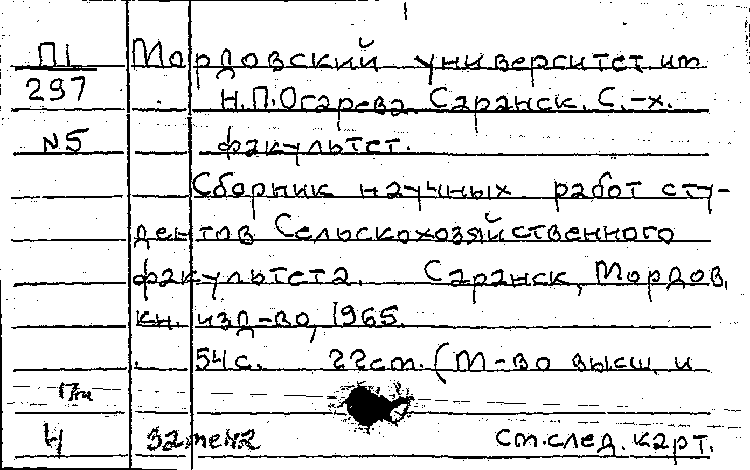 П1 Мордовский университет им
297 Н.П.Огарева. Саранск. С.-х.
N5 факультет.
Сборник научных работ сту-
дентов Сельскохозяйственного
факультета. Саранск, Мордов.
кн. изд-во, 1965.
54 с. 22 см. (М-во высш. и
4 замена См. след. карт.